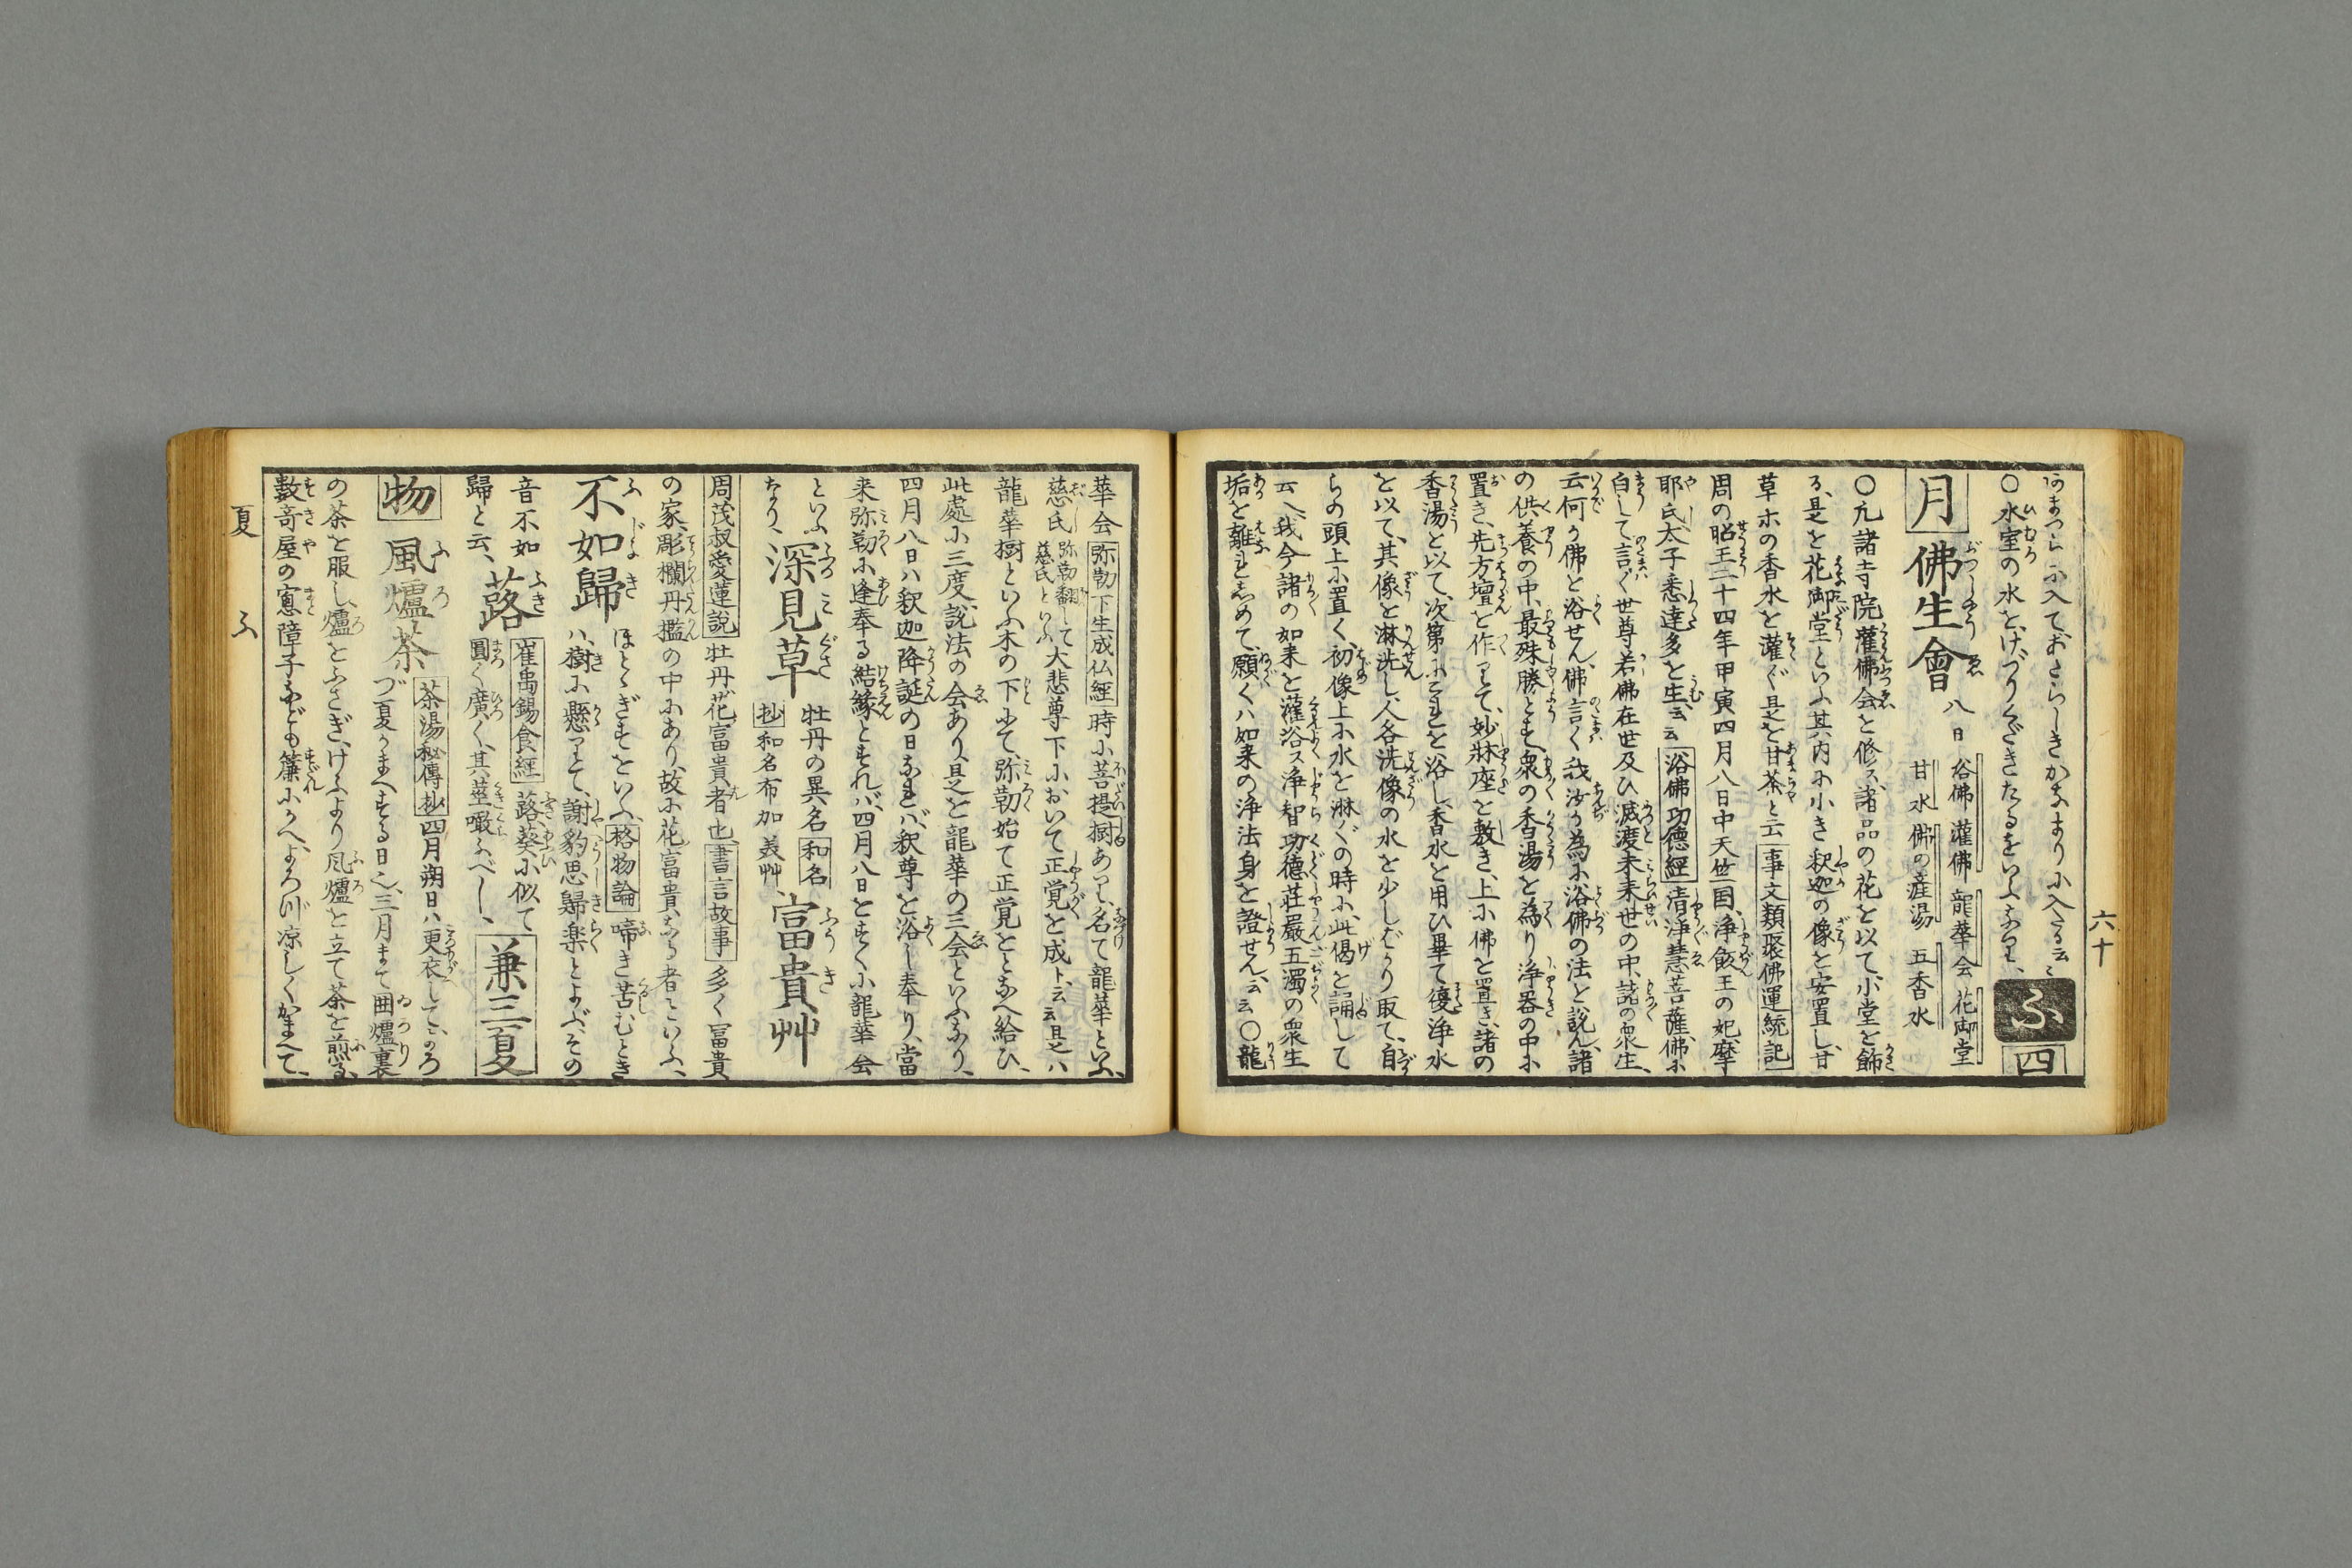 六十
○氷室の水を、けづりくだきたるをいふなり、
ふ 四
月 佛生會 八日 浴佛 灌佛 龍華会 花御堂
甘水 佛の産湯 五香水
○凡諸寺院灌佛会を修ス、諸品の花を以て、小堂を飾
る、是を花御堂といふ其内に小き釈迦の像を安置し、甘
草木の香水を灌ぐ是を甘茶と云 事文類聚佛運統記
周の昭王二十四年甲寅四月八日中天竺国、浄飯王の妃摩
耶氏、太子悉達多を生、云云 浴佛功徳經 清浄慧菩薩、佛に
白して、言ぐ世尊若佛在世及ひ滅渡未来世の中、諸の衆生、
云何が佛を浴せん、佛言く我汝が為に浴佛の法を説ん、諸
の供養の中、最殊勝とす、衆の香湯を為り浄器の中に
置き、先方壇を作りて、妙牀座を敷き、上に佛を置き、諸の
香湯を以て、次第にこれを浴し、香水を用ひ畢て復浄水
を以て、其像を淋洗し、人各洗像の水を少しばかり取て、自
らの頭上に置く、初像上に水を淋ぐの時に、此偈を誦して
云へ我今諸の如来を灌浴ス浄智功徳荘嚴五濁の衆生
垢を離れしめて、願くハ如来の浄法身を證せん、云云○龍
華会 弥勒下生成仏經 時に菩提樹あり、名て龍華といふ、
慈氏 弥勒翻して慈氏といふ 大悲尊下において正覚を成ト、云云是ハ
龍華樹といふ木の下にて、弥勒始て正覚をとなへ給ひ、
此處に三度、説法の会あり、是を龍華の三会といふなり、
四月八日ハ釈迦降誕の日なれバ、釈尊を浴し奉り、當
来弥勒に逢奉る結縁とすれバ、四月八日をすぐに龍華会
といふ 深見草 牡丹の異名 和名抄 和名布加美艸 富貴艸
なり、
周茂叔愛蓮説 牡丹花富貴者也 書言故事 多く冨貴
の家、彫欄丹檻の中にあり、故に花富貴なる者といふ、
不如歸 ほとゝぎすをいふ、格物論 啼き苦むとき
ハ、樹に懸りて、謝豹思歸楽とよぶ、その
音不如歸と云、 蕗 崔禹錫食經 蕗、葵に似て
圓く廣く、其莖噉ふべし、 兼三夏
物 風爐茶 茶湯秘傳抄 四月朔日ハ更衣してころ
づ夏かまへする日也、三月まて囲爐裏
の茶を服し、爐をふさぎ、けふより風爐を立て茶を煎る、
數奇屋の窓障子なども簾にかへ、よろづ凉しくかまへて、
夏 ふ